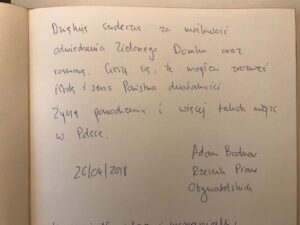 Dziękuję serdecznie za możliwość
odwiedzenia Zielonego Domku oraz
rozmowy. Cieszę się, że mogłem zrozumieć
ideę i sens Państwa działalności.
Życzę powodzenia i więcej takich miejsc
w Polsce.
Adam Bodnar
26/04/2018
Rzecznik Praw
Obywatelskich